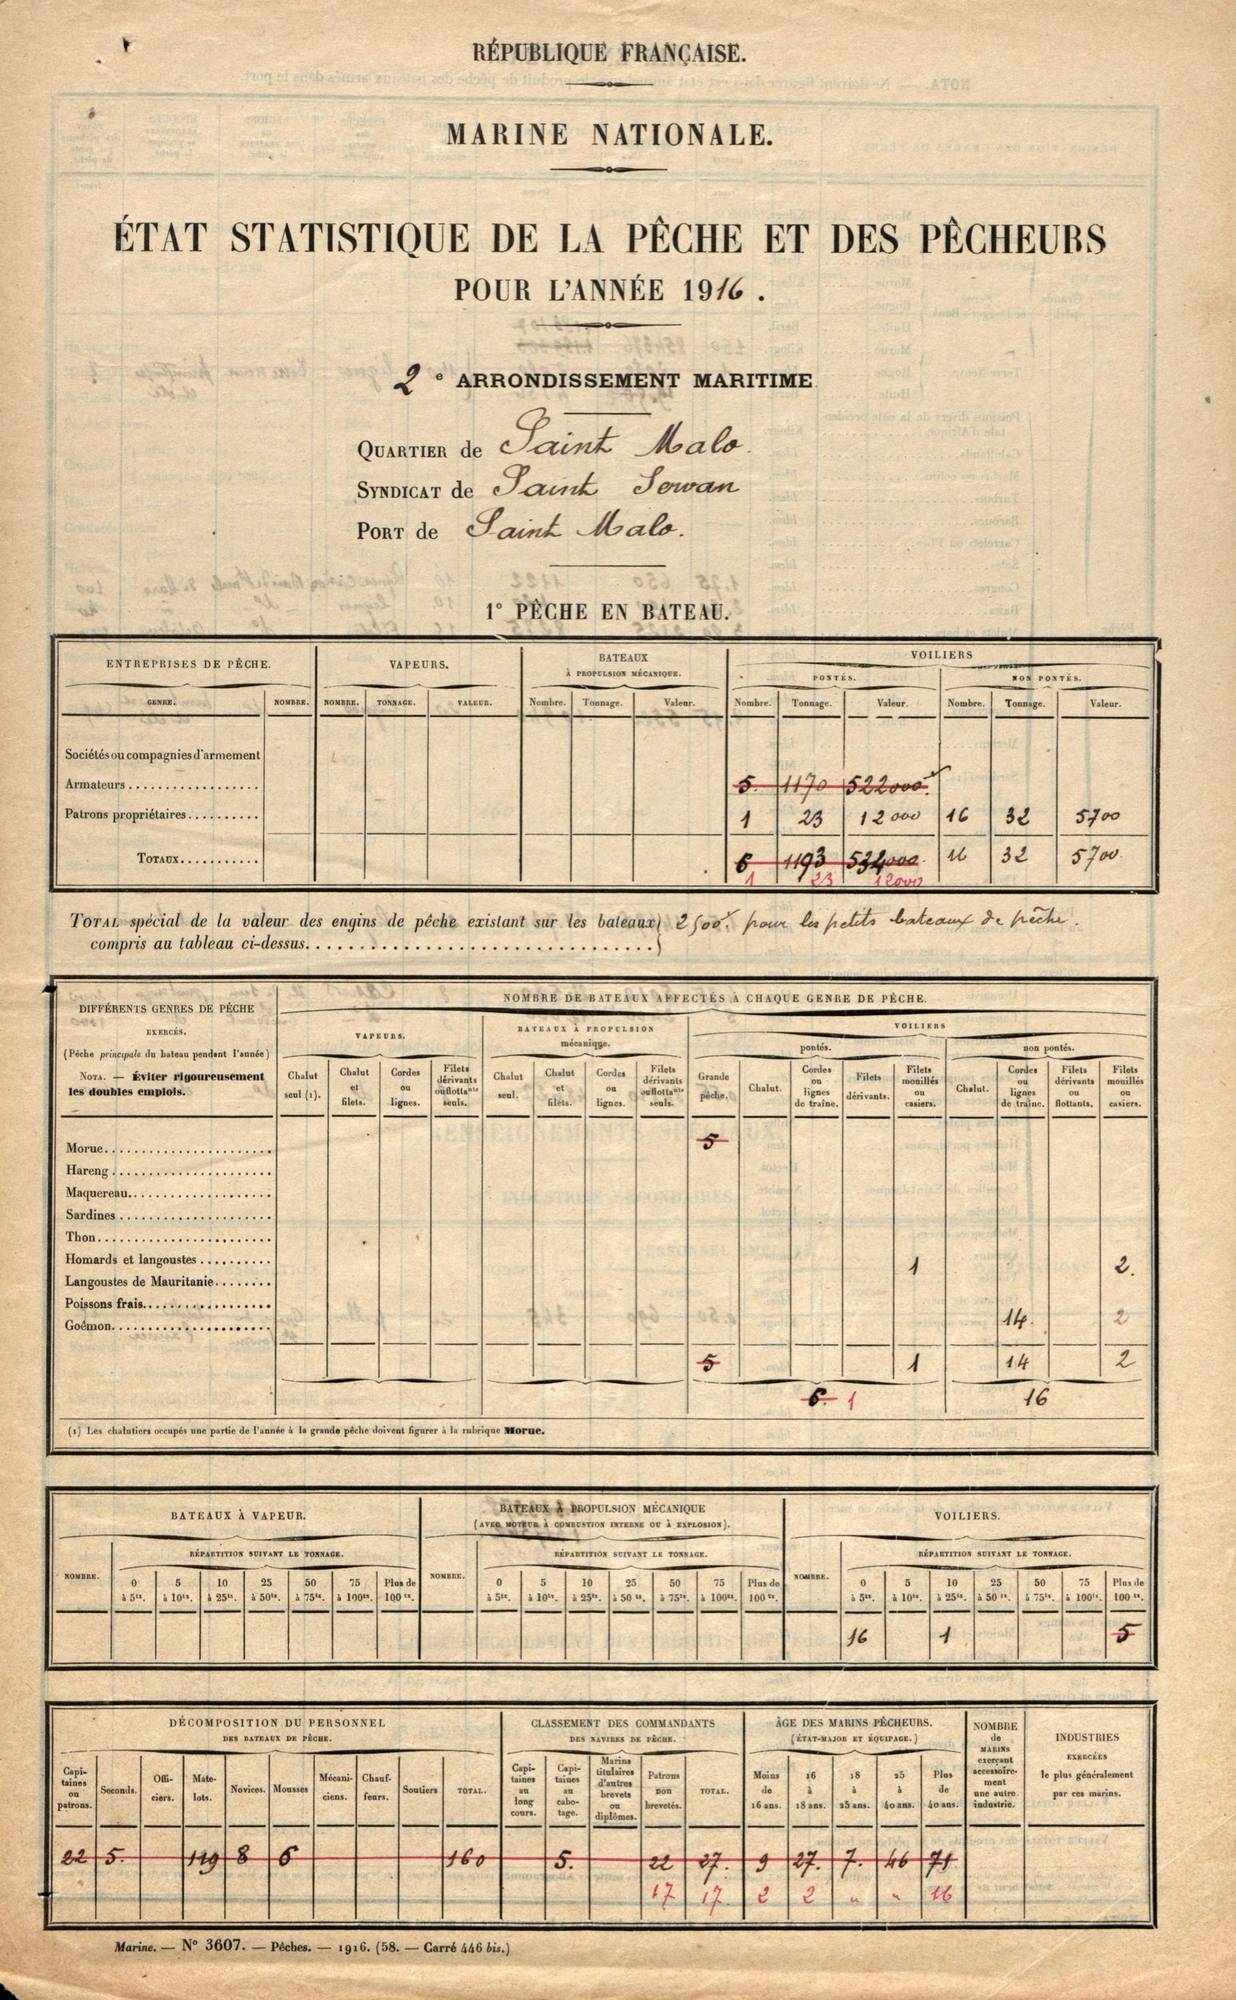 RÉPUBLIQUE FRANÇAISE.
MARINE NATIONALE.
ÉTAT STATISTIQUE DE LA PÊCHE ET DES PÊCHEURS
POUR L'ANNÉE 1916.
2e ARRONDISSEMENT MARITIME
QUARTIER de Saint Malo.
SYNDICAT de Saint Servan
PORT de Saint Malo.
1° PÊCHE EN BATEAU.
ENTREPRISES DE PÊCHE. VAPEURS. BATEAUX À PROPULSION MÉCANIQUE. VOILIERS
PONTÉS. NON PONTÉS.
GENRE. NOMBRE. NOMBRE. TONNAGE. VALEUR. Nombre. Tonnage. Valeur. Nombre. Tonnage. Valeur. Nombre. Tonnage. Valeur.
Sociétés ou compagnies d'armement
Armateurs 5. 1170 522000f.
Patrons propriétaires 1 23 12000 16 32 5700
TOTAUX 6 1193 534000. 16 32 5700.
1 23 12000
TOTAL spécial de la valeur des engins de pêche existant sur les bateaux 2500f. pour les petits bateaux de pêche.
compris au tableau ci-dessus
DIFFÉRENTS GENRES DE PÊCHE
EXERCÉS.
(Pêche principale du bateau pendant l'année)
NOTA. — Éviter rigoureusement
les doubles emplois.
NOMBRE DE BATEAUX AFFECTÉS À CHAQUE GENRE DE PÊCHE.
VAPEURS. BATEAUX À PROPULSION mécanique. VOILIERS
pontés. non pontés.
Chalut seul (1). Chalut et filets. Cordes ou lignes. Filets dérivants ou flottants seuls. Chalut seul. Chalut et filets. Cordes ou lignes. Filets dérivants ou flottants seuls. Grande pêche. Chalut. Cordes ou lignes de traîne. Filets dérivants. Filets mouillés ou casiers. Chalut. Cordes ou lignes de traîne. Filets dérivants ou flottants. Filets mouillés ou casiers.
Morue 5
Hareng
Maquereau
Sardines
Thon
Homards et langoustes 1 2.
Langoustes de Mauritanie
Poissons frais 14. 2
Goémon
5 1 14 2
6. 1 16
(1) Les chalutiers occupés une partie de l'année à la grande pêche doivent figurer à la rubrique Morue.
BATEAUX À VAPEUR. BATEAUX À PROPULSION MÉCANIQUE (AVEC MOTEUR À COMBUSTION INTERNE OU À EXPLOSION). VOILIERS.
NOMBRE. RÉPARTITION SUIVANT LE TONNAGE. NOMBRE. RÉPARTITION SUIVANT LE TONNAGE. NOMBRE. RÉPARTITION SUIVANT LE TONNAGE.
0 à 5tx. 5 à 10tx. 10 à 25tx. 25 à 50tx. 50 à 75tx. 75 à 100tx. Plus de 100tx. 0 à 5tx. 5 à 10tx. 10 à 25tx. 25 à 50tx. 50 à 75tx. 75 à 100tx. Plus de 100tx. 0 à 5tx. 5 à 10tx. 10 à 25tx. 25 à 50tx. 50 à 75tx. 75 à 100tx. Plus de 100tx.
16 1 5
DÉCOMPOSITION DU PERSONNEL DES BATEAUX DE PÊCHE. CLASSEMENT DES COMMANDANTS DES NAVIRES DE PÊCHE. ÂGE DES MARINS PÊCHEURS. (ÉTAT-MAJOR ET ÉQUIPAGE.) NOMBRE de MARINS exerçant accessoirement une autre industrie. INDUSTRIES EXERCÉES le plus généralement par ces marins.
Capitaines ou patrons. Seconds. Officiers. Matelots. Novices. Mousses Mécaniciens. Chauffeurs. Soutiers TOTAL. Capitaines au long cours. Capitaines au cabotage. Marins titulaires d'autres brevets ou diplômes. Patrons non brevetés. TOTAL. Moins de 16 ans. 16 à 18 ans. 18 à 25 ans. 25 à 40 ans. Plus de 40 ans.
22 5. 119 8 6 160 5. 22 27. 9 27. 7. 46 71
17 17. 2 2 " " 16
Marine. — N° 3607. — Pêches. — 1916. (58. — Carré 446 bis.)